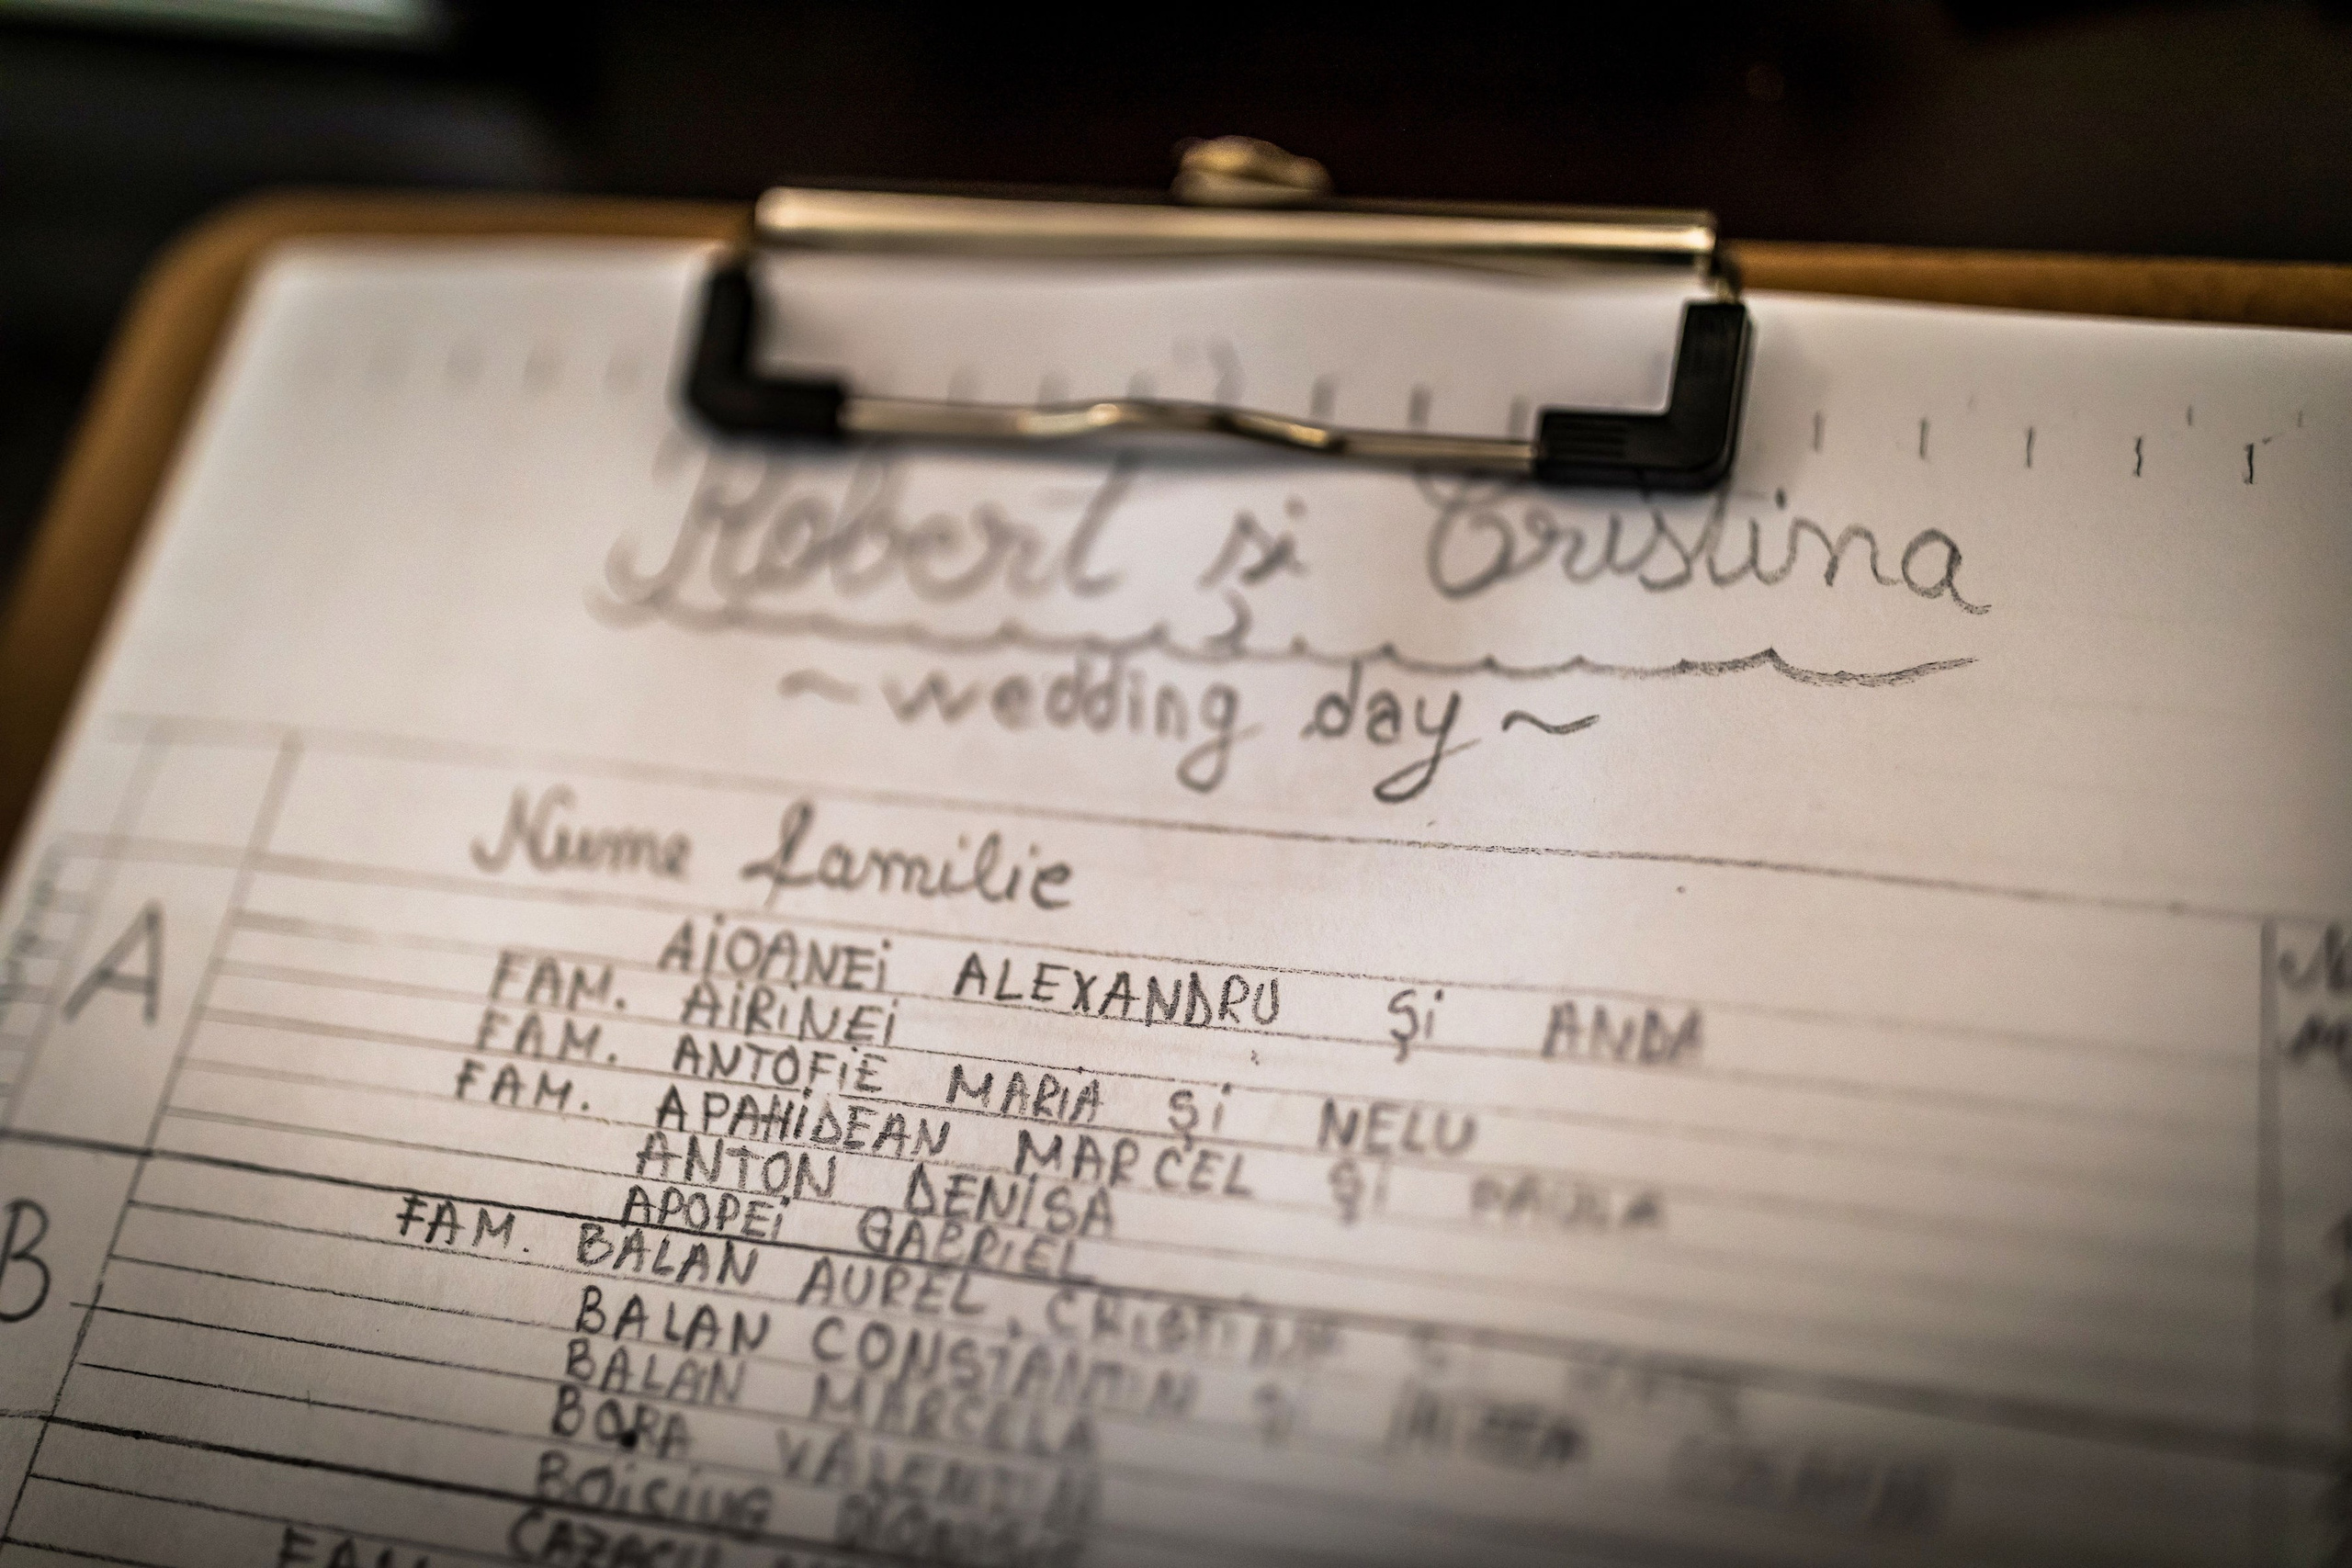 Robert si Cristina
~ wedding day ~
Nume familie
A
AiOANEi ALEXANDRU Şi ANDA
FAM. AiRiNEi
FAM. ANTOFiE MARiA Şi NELU
FAM. APAHiDEAN MARCEL Şi
ANTON DENiSA
APOPEi GABRiEL
B
FAM. BALAN AUREL, CRiSTiAN
BALAN CONSTANTiN Şi
BALAN MARCELA
BORA VALENTiN